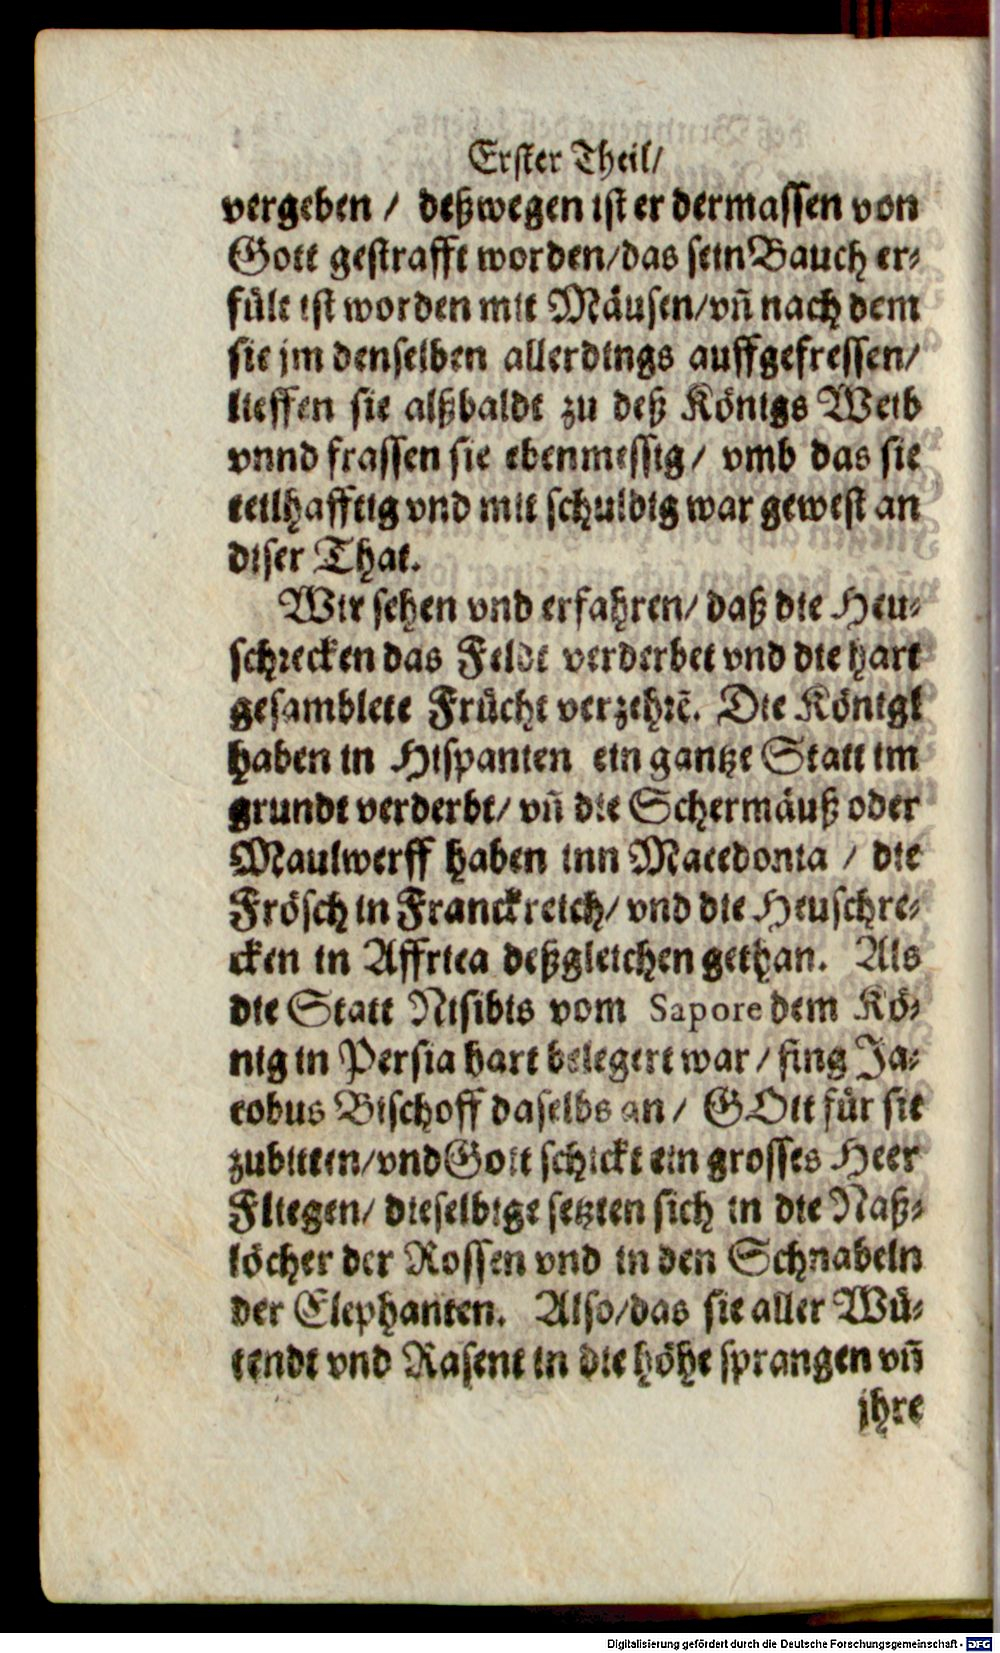 Erster Theil/
vergeben / deßwegen ist er dermassen von
Gott gestrafft worden/das sein Bauch er-
fült ist worden mit Mäusen/vñ nach dem
sie jm denselben allerdings auffgefressen/
lieffen sie alßbaldt zu deß Königs Weib
vnnd frassen sie ebenmessig/ vmb das sie
teilhafftig vnd mit schuldig war gewest an
diser That.
Wir sehen vnd erfahren/ daß die Heu-
schrecken das Feldt verderbet vnd die hart
gesamblete Frücht verzehrẽ. Die Königl
haben in Hispanien ein gantze Statt im
grundt verderbt/ vñ die Schermäuß oder
Maulwerff haben inn Macedonia / die
Frösch in Franckreich/ vnd die Heuschre-
cken in Affrica deßgleichen gethan. Als
die Statt Nisibis vom Sapore dem Kö-
nig in Persia hart belegert war / fing Ja-
cobus Bischoff daselbs an / GOtt für sie
zubitten/vnd Gott schickt ein grosses Heer
Fliegen/ dieselbige setzten sich in die Naß-
löcher der Rossen vnd in den Schnabeln
der Elephanten. Also/das sie aller Wü-
tendt vnd Rasent in die höhe sprangen vñ
jhre
Digitalisierung gefördert durch die Deutsche Forschungsgemeinschaft - DFG